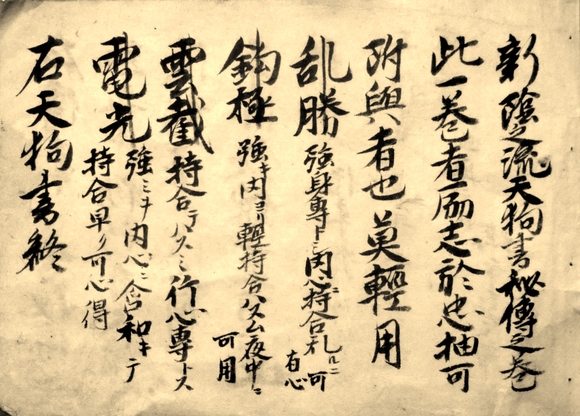 新陰之流天狗書秘傳之巻
此一巻者励志於忠抽可
附與者也莫輕用
乱勝 強身専トシ内心持合乱ルニ可
有心
鈎極 強キ内ヨリ輕持合ハスム夜中ニ
可用
雲截 持合テハスミ行心専トス
電光 強ミヲ内心ニ含和キテ
持合早ク可心得
右天狗書終